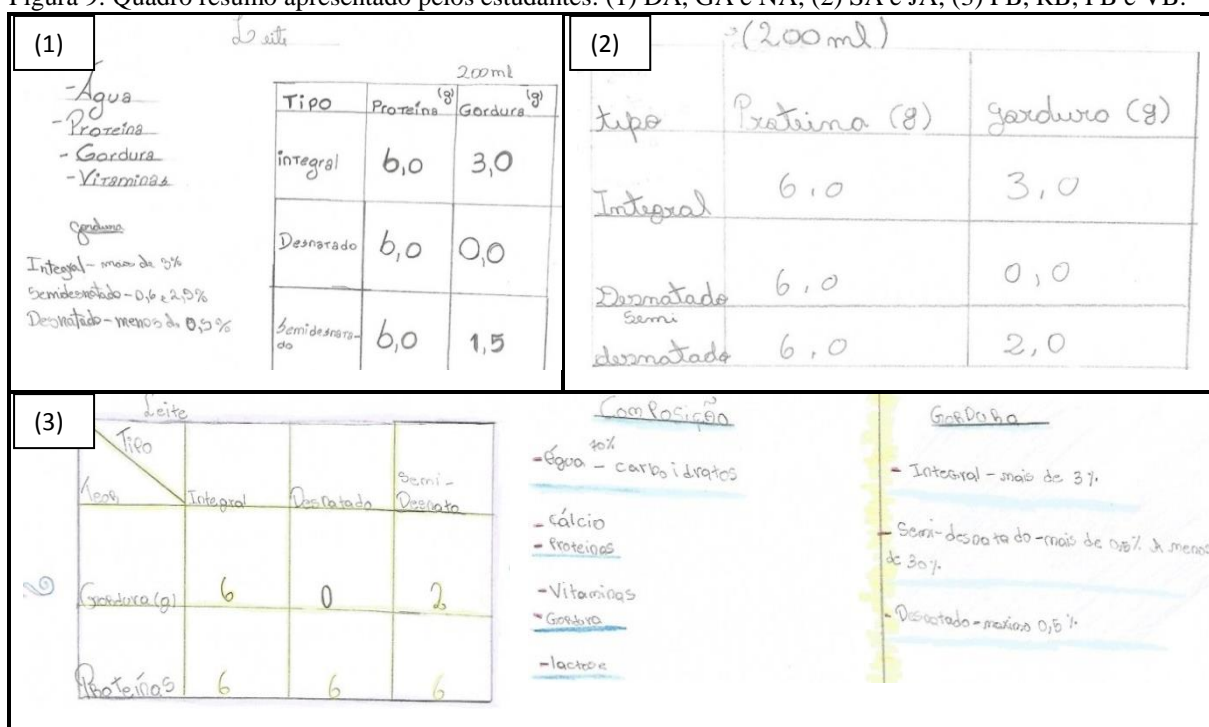 Figura 9. Quadro resumo apresentado pelos estudantes: (1) DA, GA e NA; (2) SA e JA; (3) PB, RB, FB e VB.
(1)
Leite
-Água
-Proteína
-Gordura
-Vitaminas
Gordura
Integral - mais de 3%
Semidesnatado - 0,6 e 2,9%
Desnatado - menos de 0,5%
200ml
Tipo Proteína (g) Gordura (g)
integral 6,0 3,0
Desnatado 6,0 0,0
Semidesnata-
do 6,0 1,5
(2)
(200ml)
tipo Proteina (g) gordura (g)
Integral 6,0 3,0
Desnatado 6,0 0,0
Semi
desnatado 6,0 2,0
(3)
Leite
Tipo
Teor Integral Desnatado Semi-
Desnato
Gordura (g) 6 0 2
Proteínas 6 6 6
Composição
-água - carboidratos
- cálcio
- Proteinas
-Vitaminas
-Gordura
-lactose
Gordura
- Integral - mais de 3%
- Semi-desnatado - mais de 0,5% A menos
de 30%
- Desnatado - maximo 0,5%